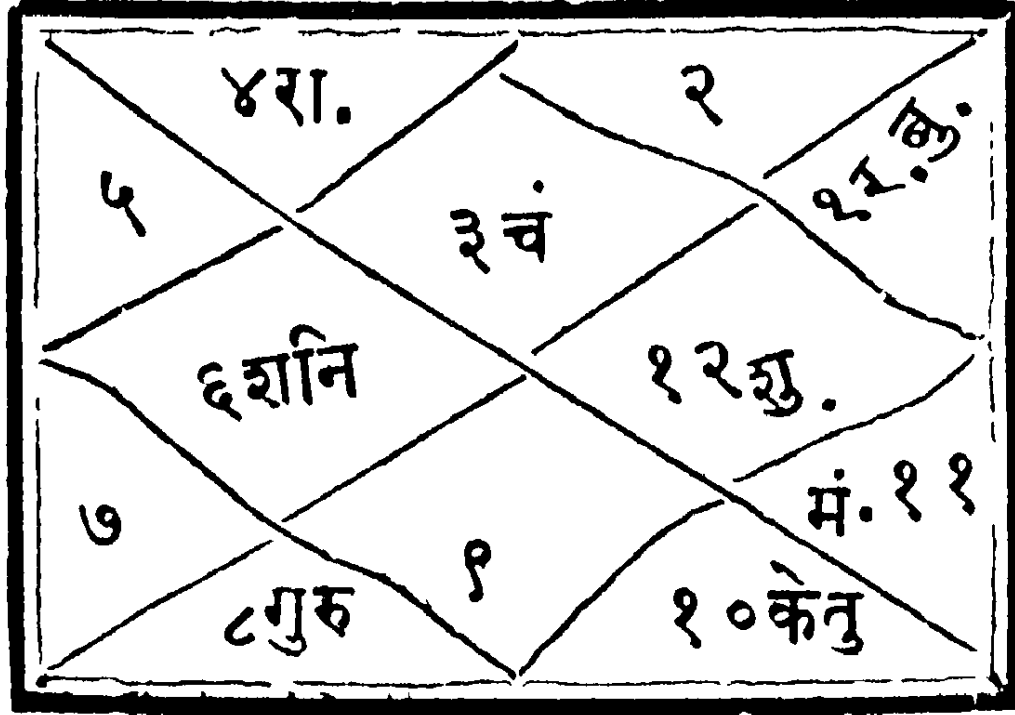 ४रा.
२
५
३चं
१र.बु.
६शनि
१२शु.
७
९
मं.११
८गुरु
१०केतु